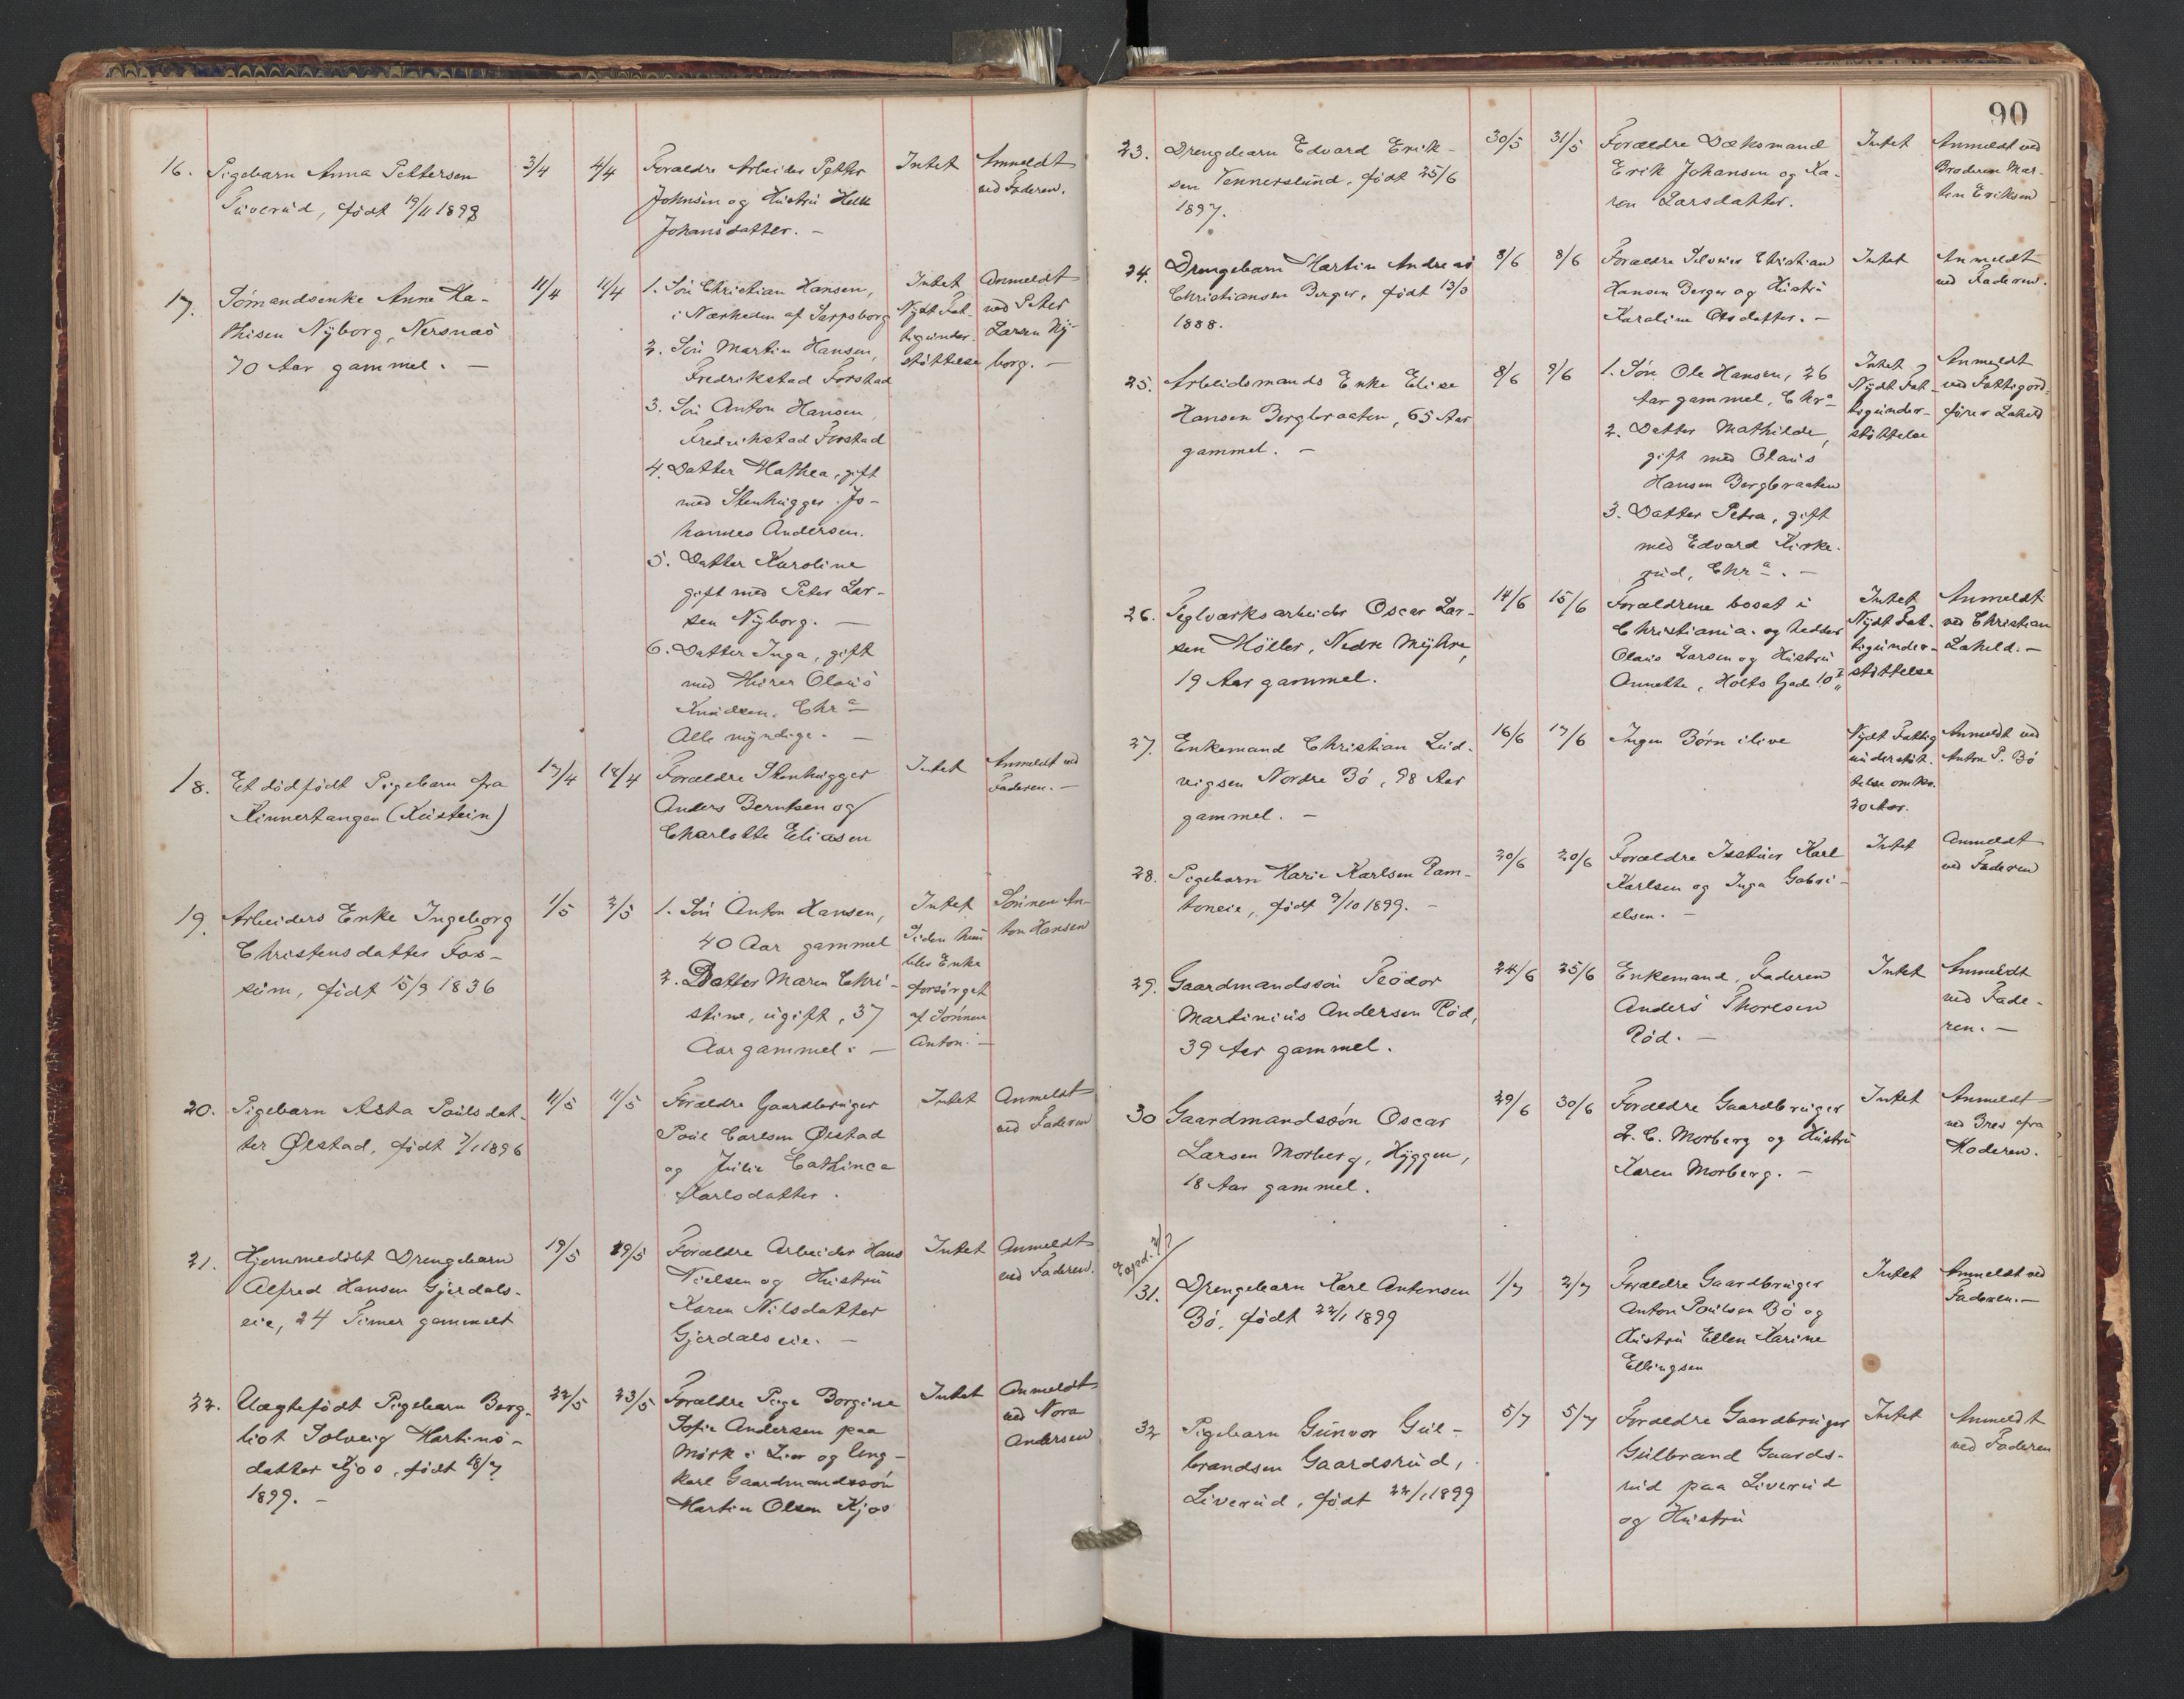 90
16. Pigebarn Anna Pettersen
Tuverud, født 19/11 1898
3/4 4/4
Forældre Arbeider Petter
Johnsen og Hustru
Johansdatter. -
Intet
Anmeldt
ved Faderen.
17. Sömandsenke Anne Ka-
thisen Nyborg, Nersnæs
70 Aar gammel. -
11/4 11/4
1. Sön Christian Hansen,
i Nærheden af Sarpsborg
2. Sön Martin Hansen,
Fredrikstad Forstad
3. Sön Anton Hansen,
Fredrikstad Forstad
4. Datter Mathea, gift
med Stenhugger Jo-
hannes Andersen.
5. Datter Karoline
gift med Peter Lar-
sen Nyborg. -
6. Datter Inga, gift
med Murer Olaus
Knudsen, Chra
Alle myndige. -
Intet
Nydt Fat-
tigunder-
støttelse
Anmeldt
ved Peter
Larsen Ny-
borg. -
18. Et dödfödt Pigebarn fra
Kinnertangen (Kustein)
17/4 18/4
Forældre Stenhugger
Anders Berntsen og
Charlotte Eliasen
Intet
Anmeldt ved
Faderen. -
19. Arbeiders Enke Ingeborg
Christensdatter Fos-
sum, født 15/9 1836
1/5 2/5
1. Sön Anton Hansen,
40 Aar gammel
2. Datter Maren Chri-
stine, ugift, 37
Aar gammel. -
Intet
Siden hun
blev Enke
forsørget
af Sønnen
Anton. -
Sønnen An-
ton Hansen
20. Pigebarn Asta Poulsdat-
ter Ølstad, født 7/1 1896
11/5 11/5
Forældre Gaardbruger
Poul Carlsen Ølstad
og Julie Cathinca
Karlsdatter.
Intet
Anmeldt
ved Faderen
21. Hjemmedöbt Drengebarn
Alfred Hansen Gjerdals-
eie, 24 Timer gammelt
19/5 19/5
Forældre Arbeider Hans
Nielsen og Hustru
Karen Nilsdatter
Gjerdalseie. -
Intet
Anmeldt
ved Faderen.
22. Uægtefödt Pigebarn Berg-
liot Solveig Martins-
datter Kjos, født 18/7
1899. -
22/5 23/5
Forældre Pige Borgine
Sofie Andersen paa
Mörk i Lier og Ung-
karl Gaardmandssön
Martin Olsen Kjos
Intet
Anmeldt
ved Nora
Andersen
23. Drengebarn Edvard Erik-
sen Vennerslund, født 25/6
1897.
30/5 31/5
Forældre Dæksmand
Erik Johansen og Ka-
ren Larsdatter.
Intet
Anmeldt ved
Broderen Mar-
tin Eriksen
24. Drengebarn Martin Andreas
Christiansen Berger, født 13/3
1888.
8/6 8/6
Forældre Christian
Hansen Berger og Hustru
Karoline Olsdatter. -
Intet
Anmeldt
ved Faderen.
25. Arbeidsmands Enke Elise
Hansen Bergbraaten, 65 Aar
gammel. -
8/6 9/6
1. Sön Ole Hansen, 26
Aar gammel, Chra
2. Datter Mathilde,
gift med Olaus
Hansen Bergbraaten
3. Datter Petra, gift
med Edvard Kirke-
rud, Chra. -
Intet
Nydt Fat-
tigunder-
støttelse
Anmeldt
ved Fattigord-
fører Laheld
26. Teglværksarbeider Oscar Lar-
sen Möller, Nedre Myhre,
19 Aar gammel.
14/6 15/6
Forældrene bosat i
Christiania og hedder
Olaus Larsen og Hustru
Annette, Holts Gade 10
Intet
Nydt Fat-
tigunder-
støttelse
Anmeldt
ved Christian
Laheld. -
27. Enkemand Christian Lud-
vigsen Nordre Bö, 98 Aar
gammel. -
16/6 17/6
Ingen Børn ilive
Nydt Fattig
understøt-
telse omkr.
20 Aar.
Anmeldt ved
Anton P. Bö
28. Pigebarn Marie Karlsen Ram-
toneie, født 9/10 1899. -
20/6 20/6
Forældre Karl
Karlsen og Inga Gabri-
elsen. -
Intet
Anmeldt
ved Faderen
29. Gaardmandssön Teödor
Martinius Andersen Röd,
39 Aar gammel.
24/6 25/6
Enkemand, Faderen
Anders Thoresen
Röd. -
Intet
Anmeldt
ved Fade-
ren. -
30 Gaardmandssön Oscar
Larsen Morberg, Hyggen,
18 Aar gammel.
29/6 30/6
Forældre Gaardbruger
L. C. Morberg og Hustru
Karen Morberg. -
Intet
Anmeldt
ved Brev fra
Moderen.
Exped. 2/7
31. Drengebarn Karl Antonsen
Bö, født 22/1 1899
1/7 2/7
Forældre Gaardbruger
Anton Poulsen Bö og
Hustru Ellen Karine
Ellingsen
Intet
Anmeldt ved
Faderen. -
32 Pigebarn Gunvor Gul-
brandsen Gaardsrud,
Liverud, født 22/1 1899
5/7 5/7
Forældre Gaardbruger
Gulbrand Gaards-
rud paa Liverud
og Hustru
Intet
Anmeldt
ved Faderen